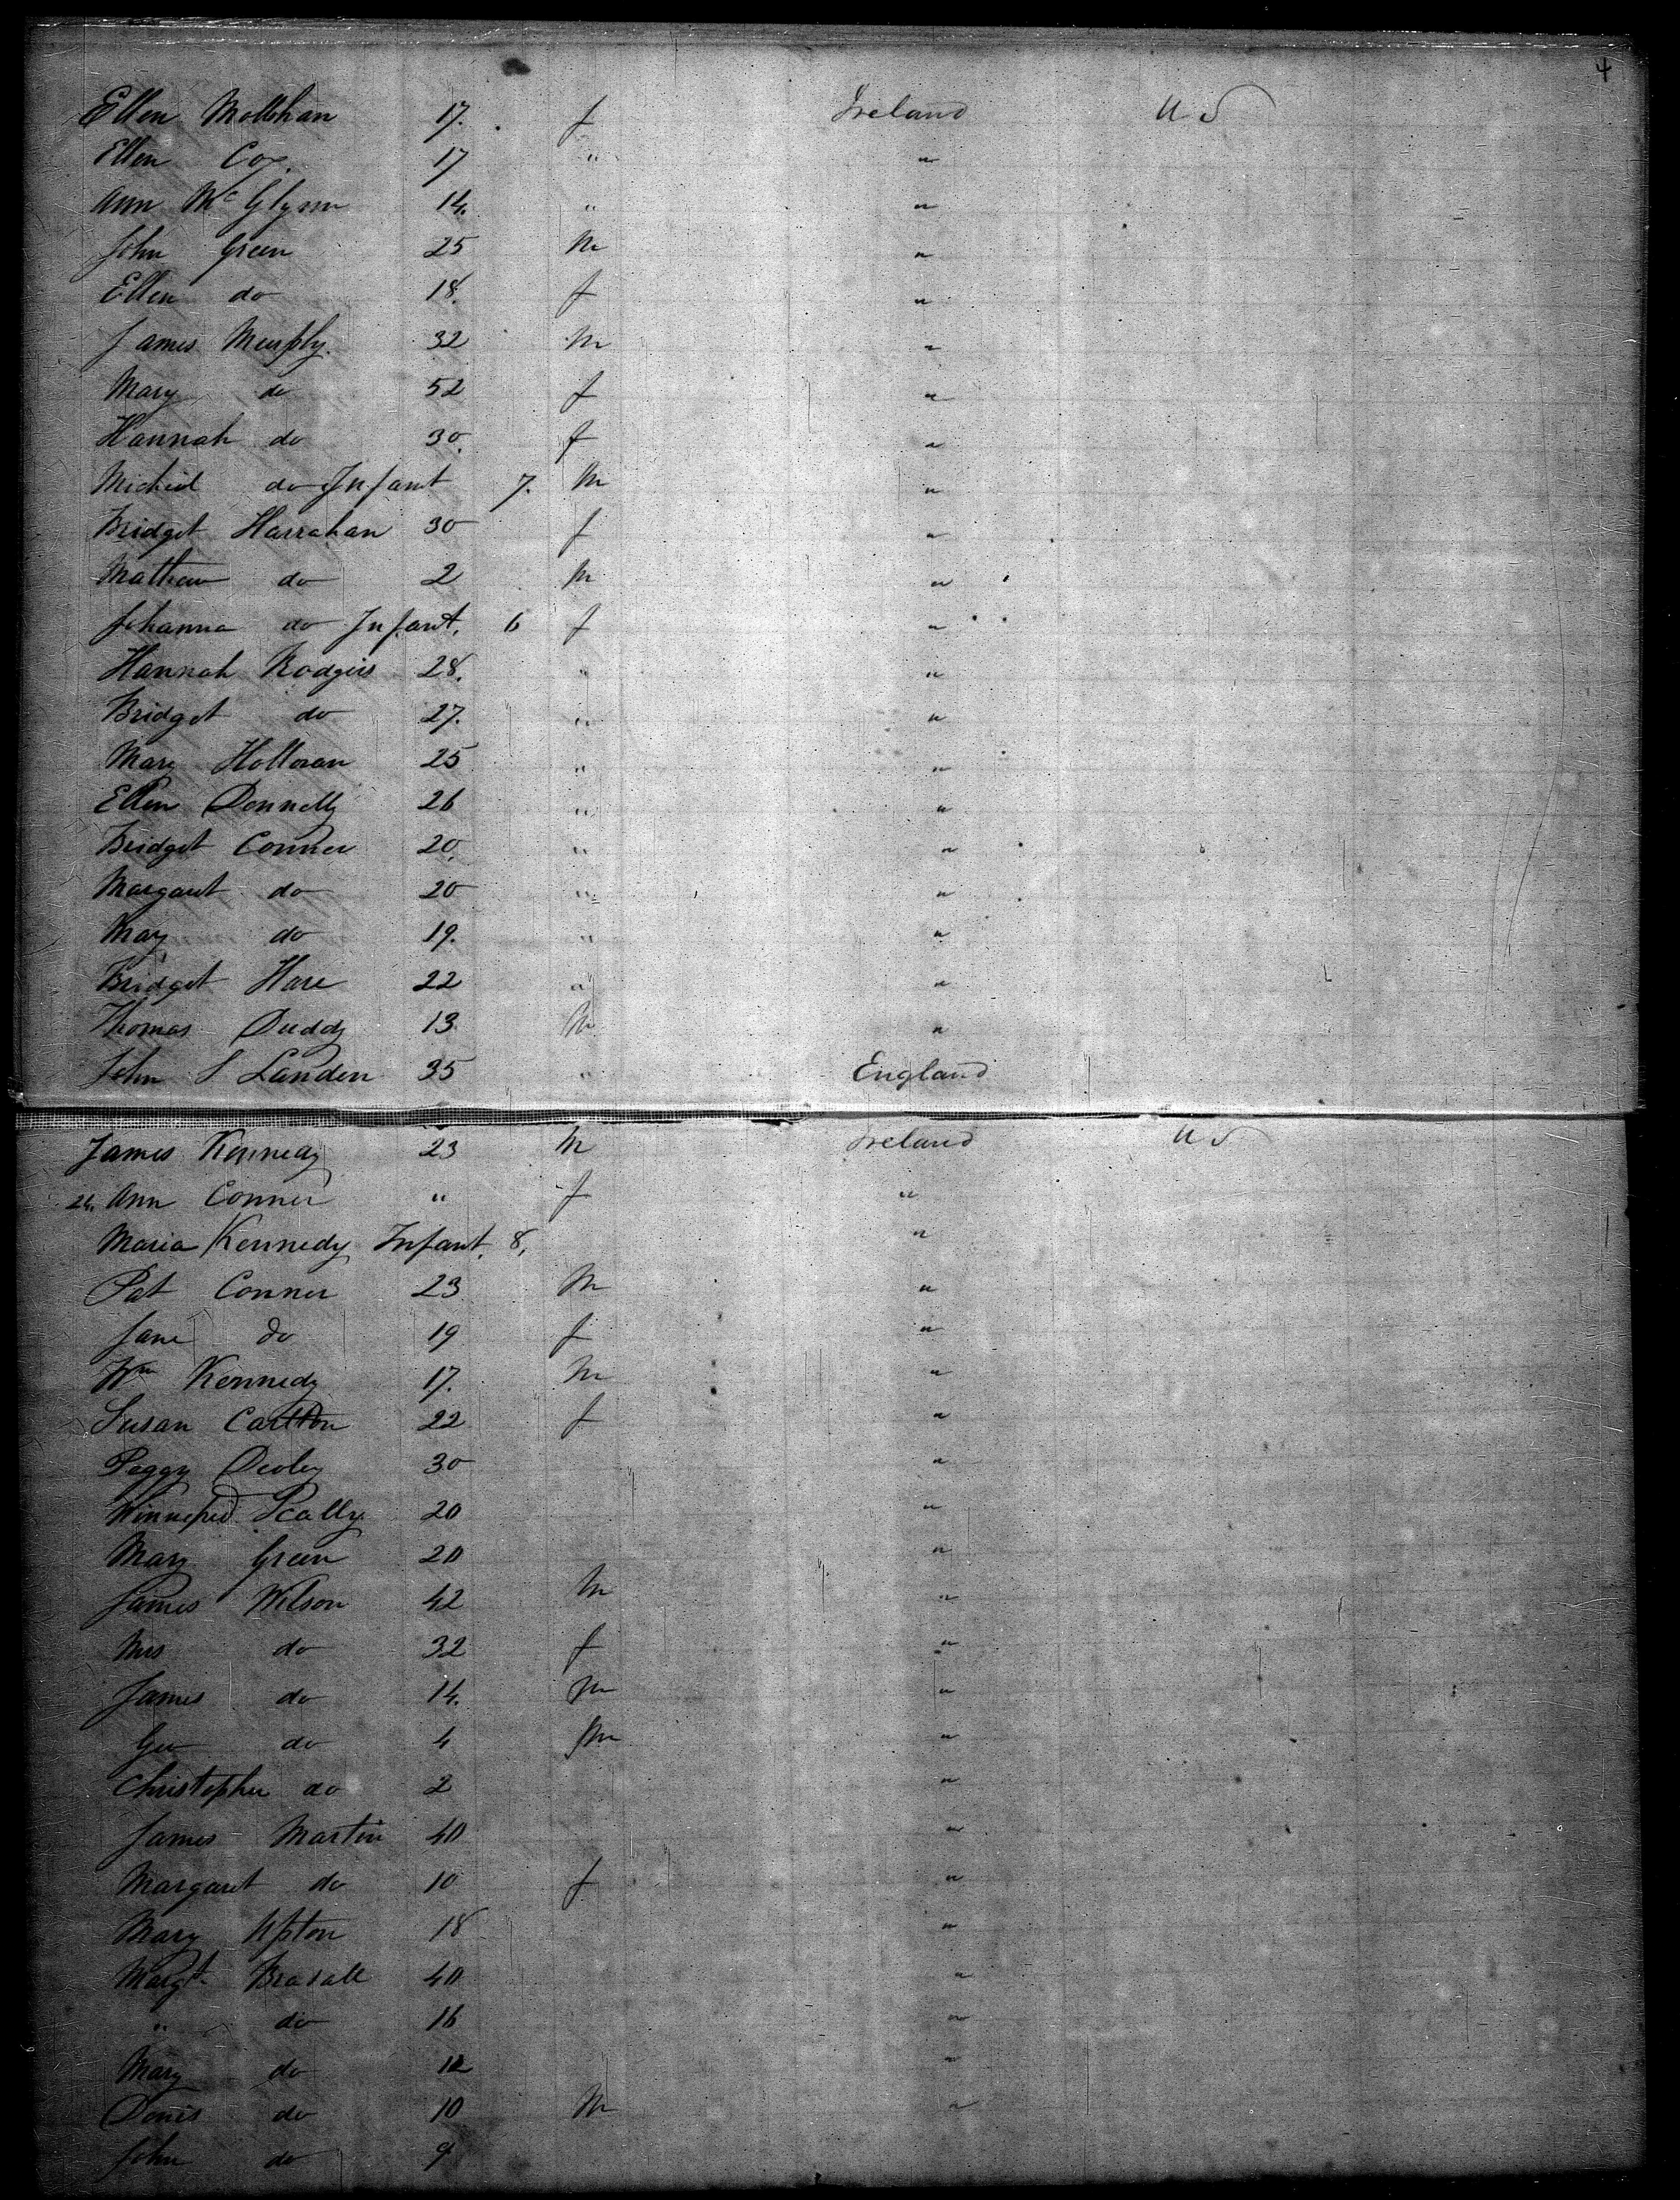 4
Ellen Mollohan 17. f Ireland U S
Ellen Cox 17 " "
Ann McGlynn 14. " "
John Green 25 M "
Ellen do 18. f "
James Murphy. 32 M "
Mary do 52 f "
Hannah do 30. f "
Michiel do Infant 7. M "
Bridget Harrahan 30 f "
Mathew do 2 M "
Johanna do Infant. 6 f "
Hannah Rodgers 28. " "
Bridget do 27. " "
Mary Holloran 25 " "
Ellen Donnelly 26 " "
Bridget Conner 20. " "
Margaret do 20 " "
May do 19. " "
Bridget Hare 22 " "
Thomas Duddy 13 M "
John S Landen 35 " England
James Kennedy 23 M Ireland U S
24. Ann Conner " f "
Maria Kennedy Infant. 8, "
Pat Conner 23 M "
Jane do 19 f "
Wm Kennedy 17. M "
Susan Carlton 22 f "
Peggy 30 "
Winnefred Scally 20 "
Mary Green 20 "
James Wilson 42 M "
Mrs do 32 f "
James do 14. M "
Geo do 4 M "
Christopher do 2 "
James Martin 40 "
Margaret do 10 f "
Mary Upton 18 "
Margt 40 "
" do 16 "
Mary do 12 "
Denis do 10 M "
John do 9